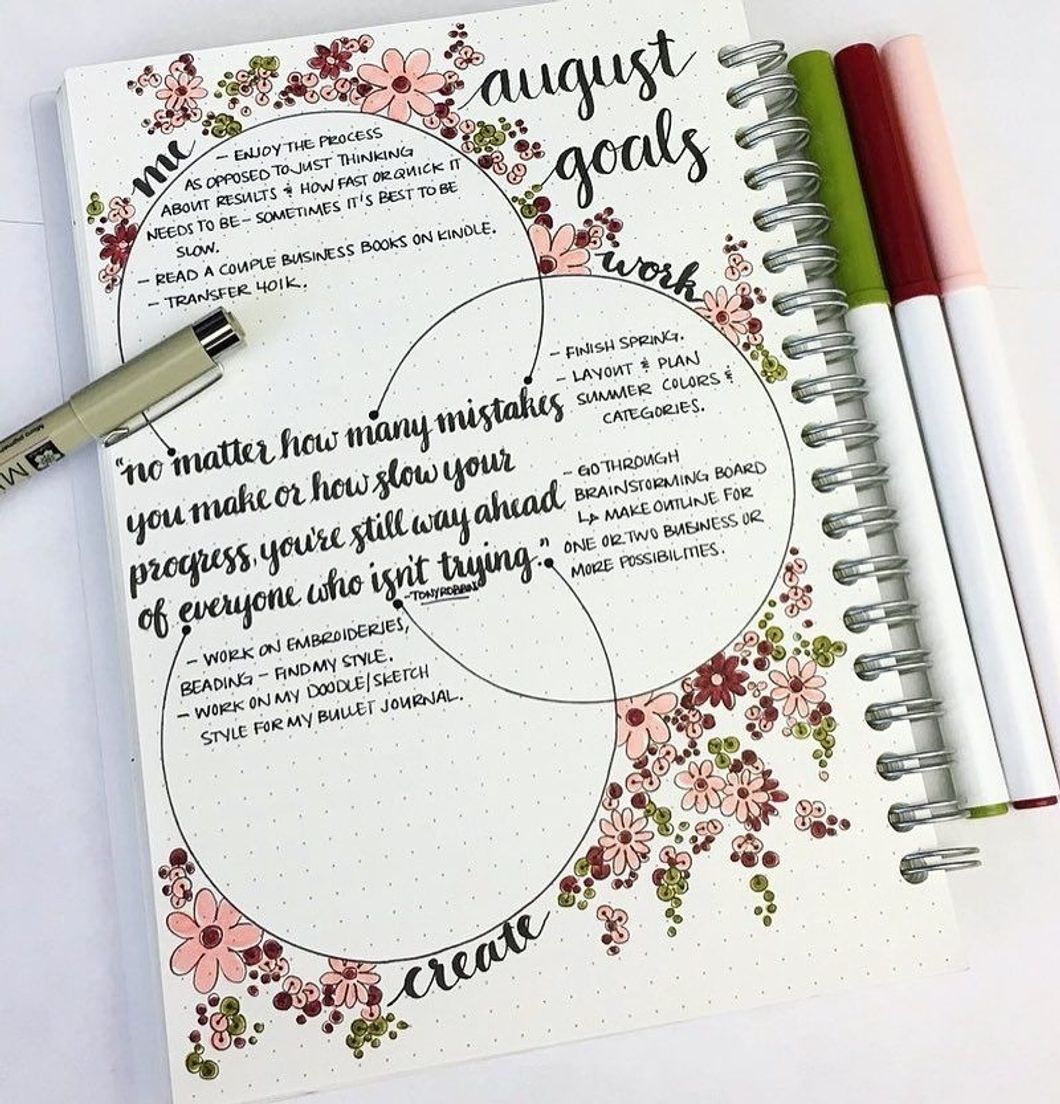 august
goals
me
– ENJOY THE PROCESS
AS OPPOSED TO JUST THINKING
ABOUT RESULTS & HOW FAST OR QUICK IT
NEEDS TO BE – SOMETIMES IT'S BEST TO BE
SLOW.
– READ A COUPLE BUSINESS BOOKS ON KINDLE.
– TRANSFER 401K.
work
– FINISH SPRING.
– LAYOUT & PLAN
SUMMER COLORS &
CATEGORIES.
– GO THROUGH
BRAINSTORMING BOARD
↳ MAKE OUTLINE FOR
ONE OR TWO BUSINESS OR
MORE POSSIBILITIES.
"no matter how many mistakes
you make or how slow your
progress, you're still way ahead
of everyone who isn't trying."
-TONY ROBBINS
– WORK ON EMBROIDERIES,
BEADING – FIND MY STYLE.
– WORK ON MY DOODLE/SKETCH
STYLE FOR MY BULLET JOURNAL.
create